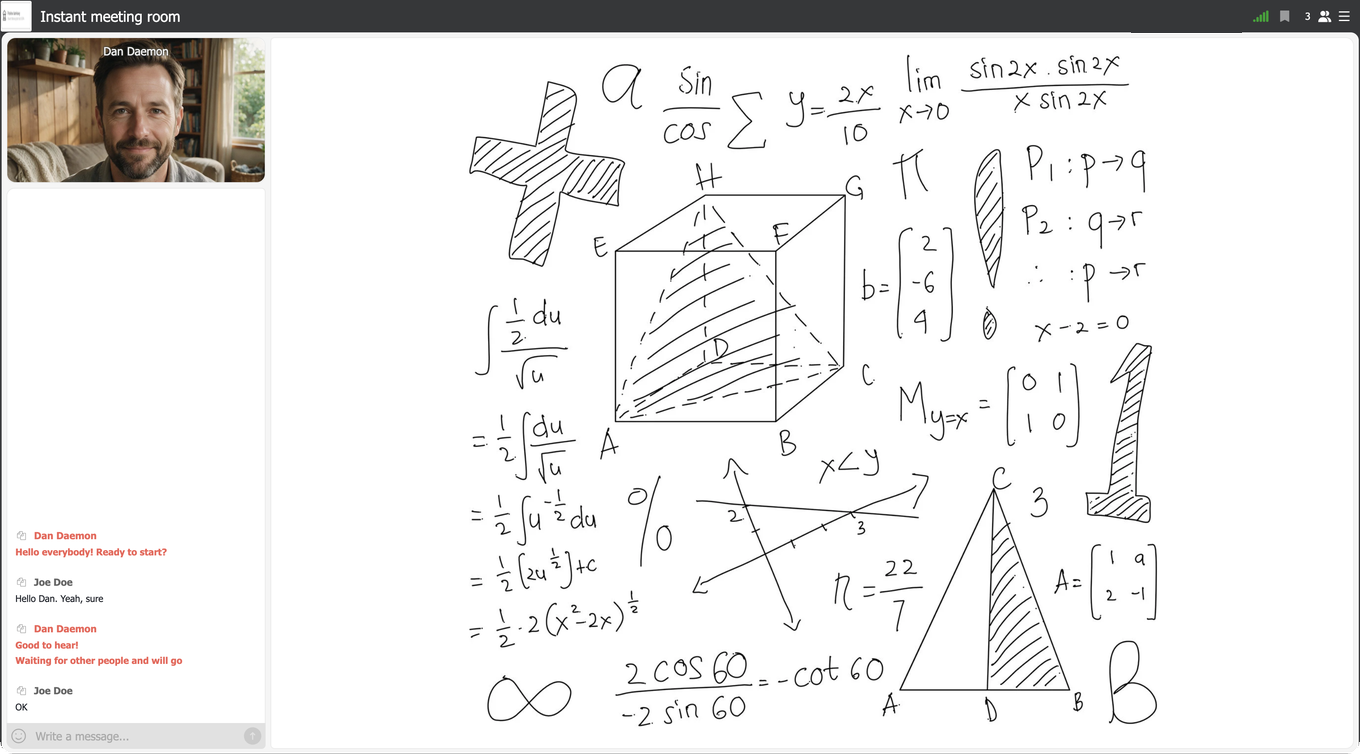 Instant meeting room
3
Dan Daemon
Dan Daemon
Hello everybody! Ready to start?
Joe Doe
Hello Dan. Yeah, sure
Dan Daemon
Good to hear!
Waiting for other people and will go
Joe Doe
OK
Write a message...
a
sin
cos
∑
y = 2x
10
lim
x→0
sin2x . sin2x
x sin2x
π
P₁ : p → q
P₂ : q → r
∴ : p → r
x - 2 = 0
H
G
E
F
D
C
A
B
b = [2
-6
4]
∫ ½ du
√u
= ½ ∫ du
√u
= ½ ∫ u^-½ du
= ½ [2u^½] + c
= ½ · 2(x² - 2x)^½
M y=x = [0 1
1 0]
1
%
x < y
2
3
π = 22
7
C
3
A
D
B
A = [1 a
2 -1]
∞
2 cos 60 = -cot 60
-2 sin 60
B